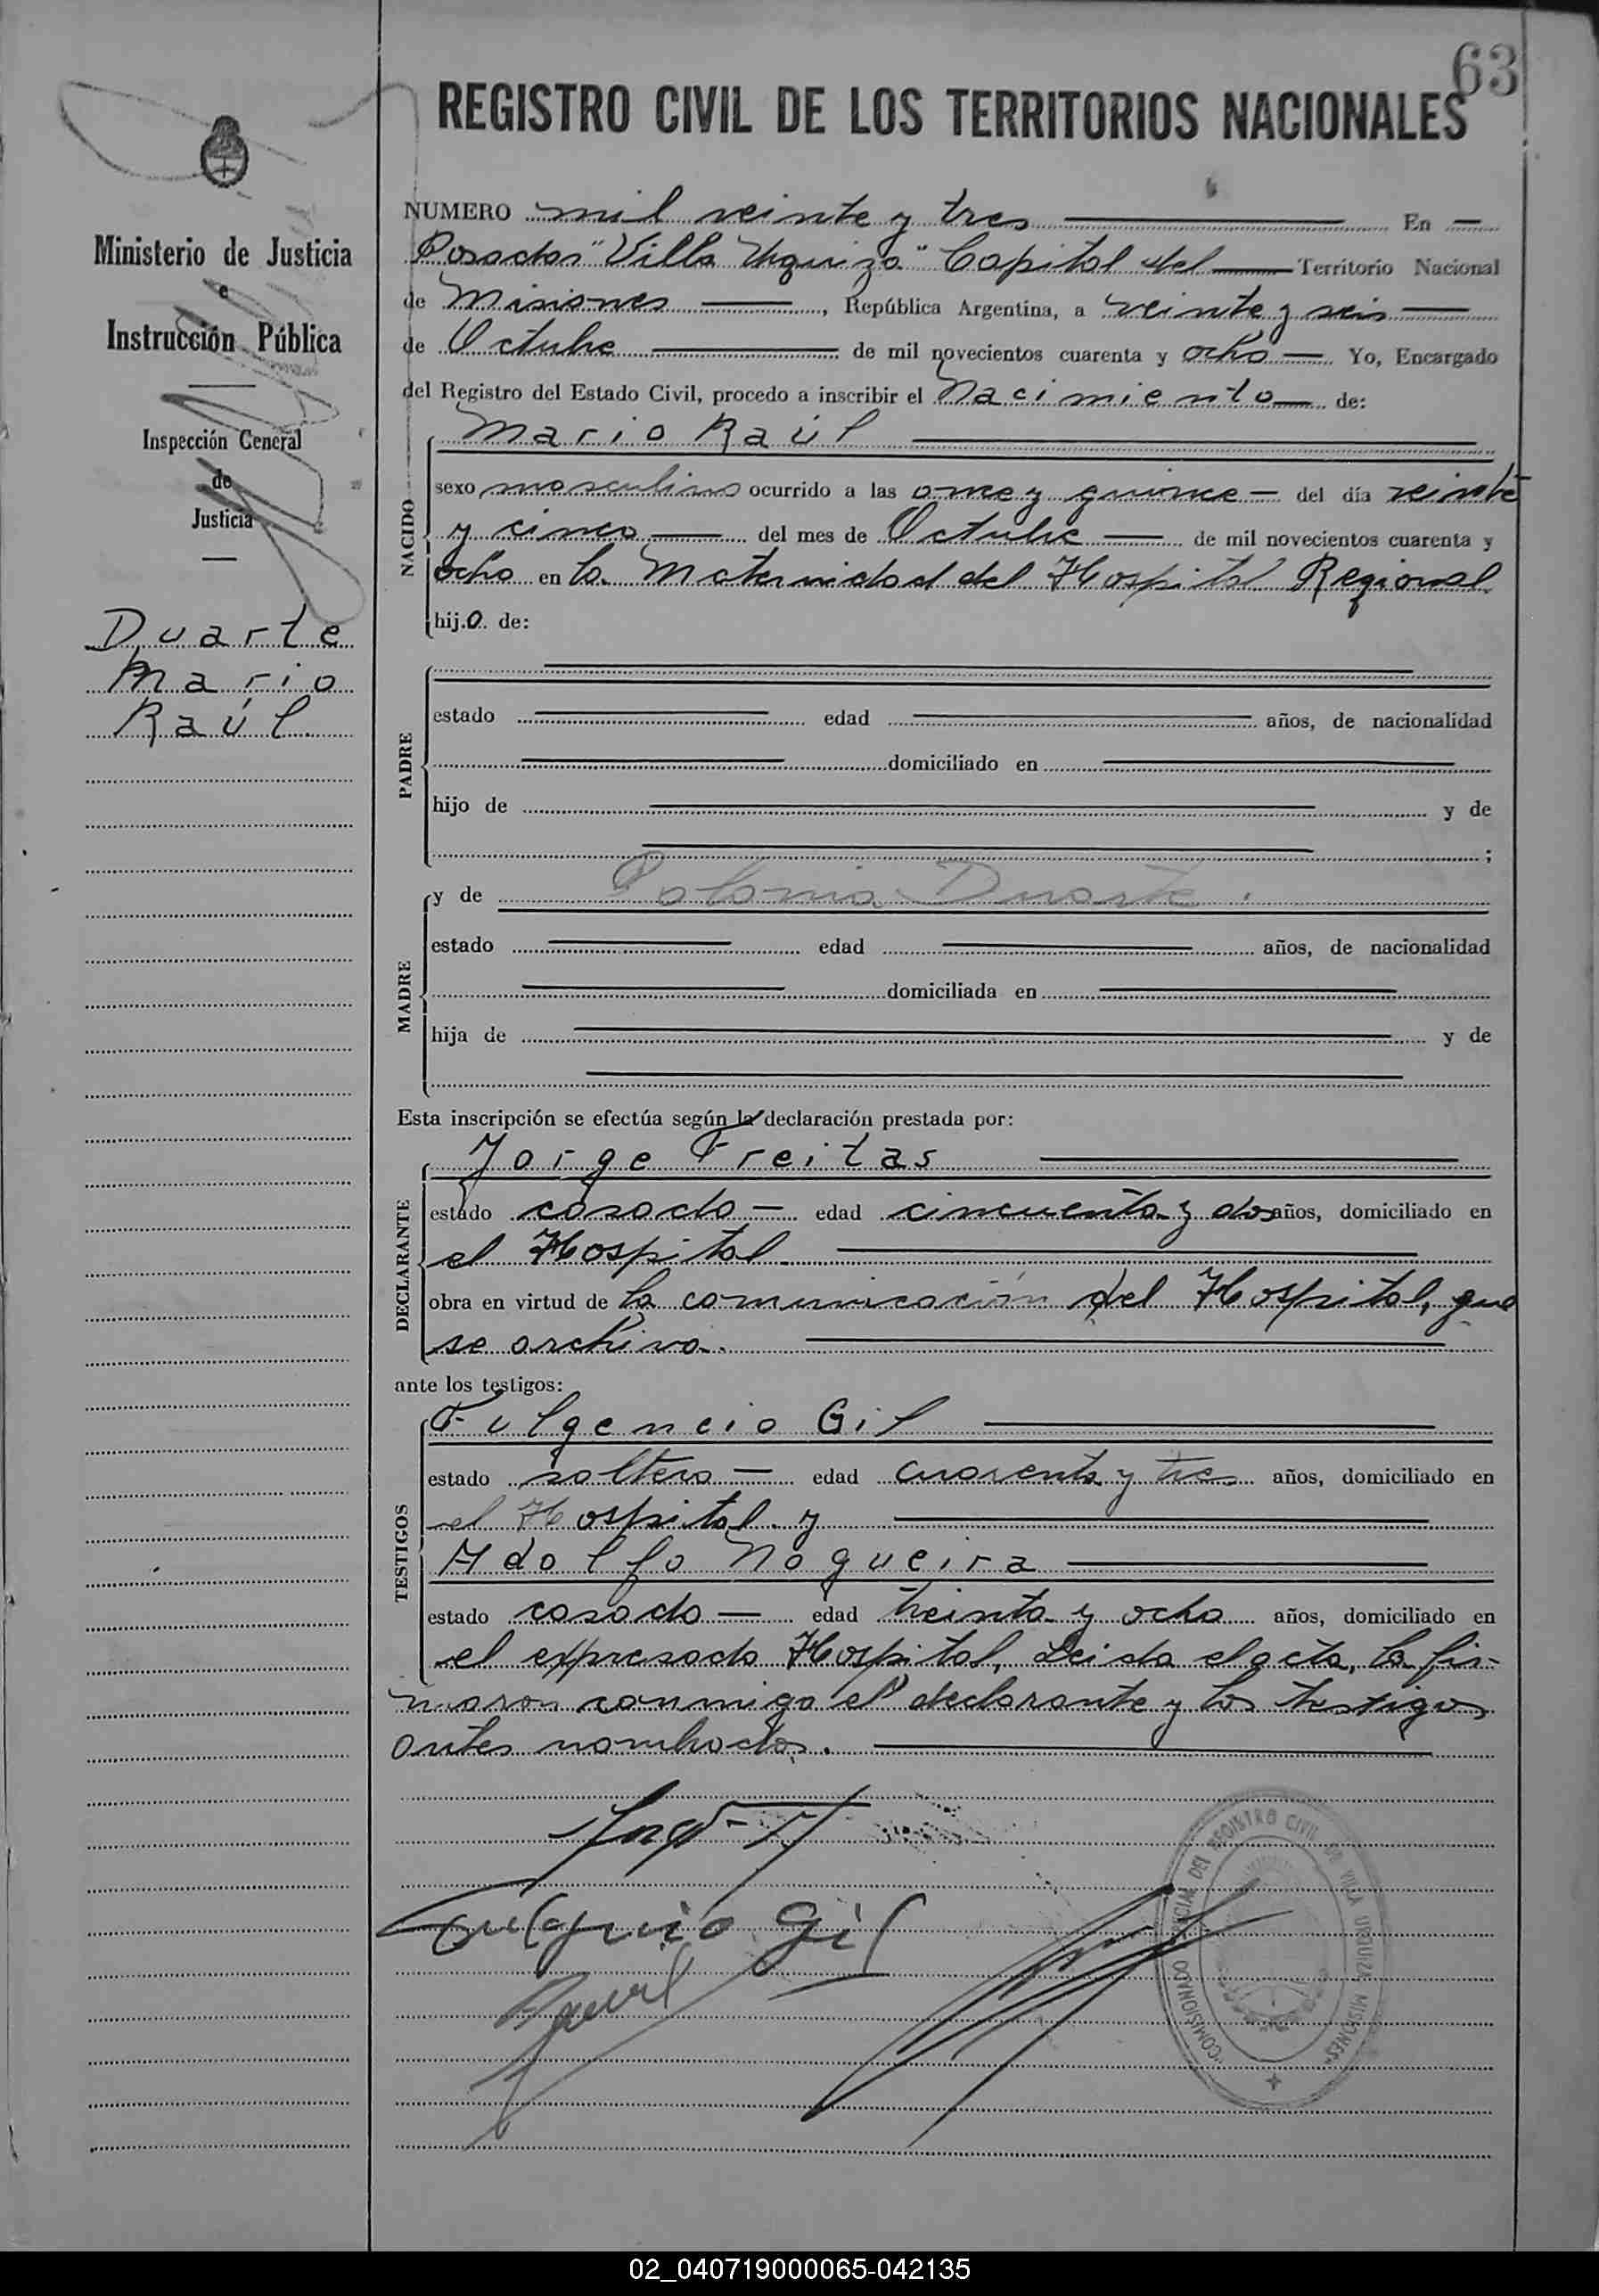 63
REGISTRO CIVIL DE LOS TERRITORIOS NACIONALES
Ministerio de Justicia
e
Instrucción Pública
Inspección General
de
Justicia
Duarte
Mario
Raúl.
NUMERO mil veinte y tres En
Posadas "Villa Urquiza" Capital del Territorio Nacional
de Misiones, República Argentina, a veinte y seis
de Octubre de mil novecientos cuarenta y ocho Yo, Encargado
del Registro del Estado Civil, procedo a inscribir el Nacimiento de:
Mario Raúl
NACIDO
sexo masculino ocurrido a las once y quince del día veinte
y cinco del mes de Octubre de mil novecientos cuarenta y
ocho en la Maternidad del Hospital Regional
hijo de:
PADRE
estado edad años, de nacionalidad
domiciliado en
hijo de y de
;
MADRE
y de Polonia Duarte.
estado edad años, de nacionalidad
domiciliada en
hija de y de
Esta inscripción se efectúa según la declaración prestada por:
DECLARANTE
Jorge Freitas
estado casado edad cincuenta y dos años, domiciliado en
el Hospital
obra en virtud de la comunicación del Hospital, que
se archiva.
ante los testigos:
TESTIGOS
Fulgencio Gil
estado soltero edad cuarenta y tres años, domiciliado en
el Hospital y
Adolfo Nogueira
estado casado edad treinta y ocho años, domiciliado en
el expresado Hospital. Leida el acta, la fir-
maron conmigo el declarante y los testigos
antes nombrados.
Fulgencio Gil
COMISIONADO ESPECIAL DEL REGISTRO CIVIL DE VILLA URQUIZA MISIONES
02_040719000065-042135